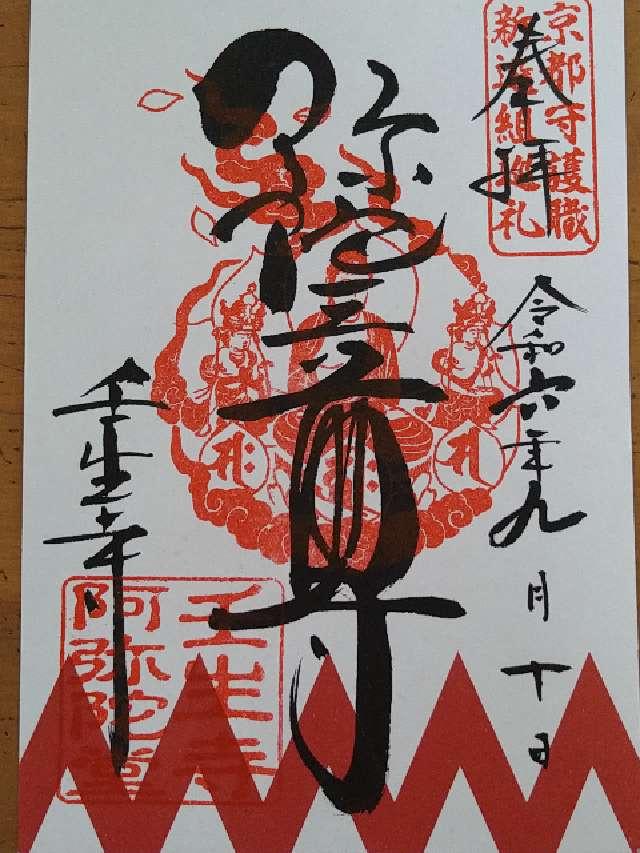 奉拝
京都守護職
新選組巡礼
令和六年九月十日
弥陀三尊
壬生寺
壬生寺
阿弥陀堂